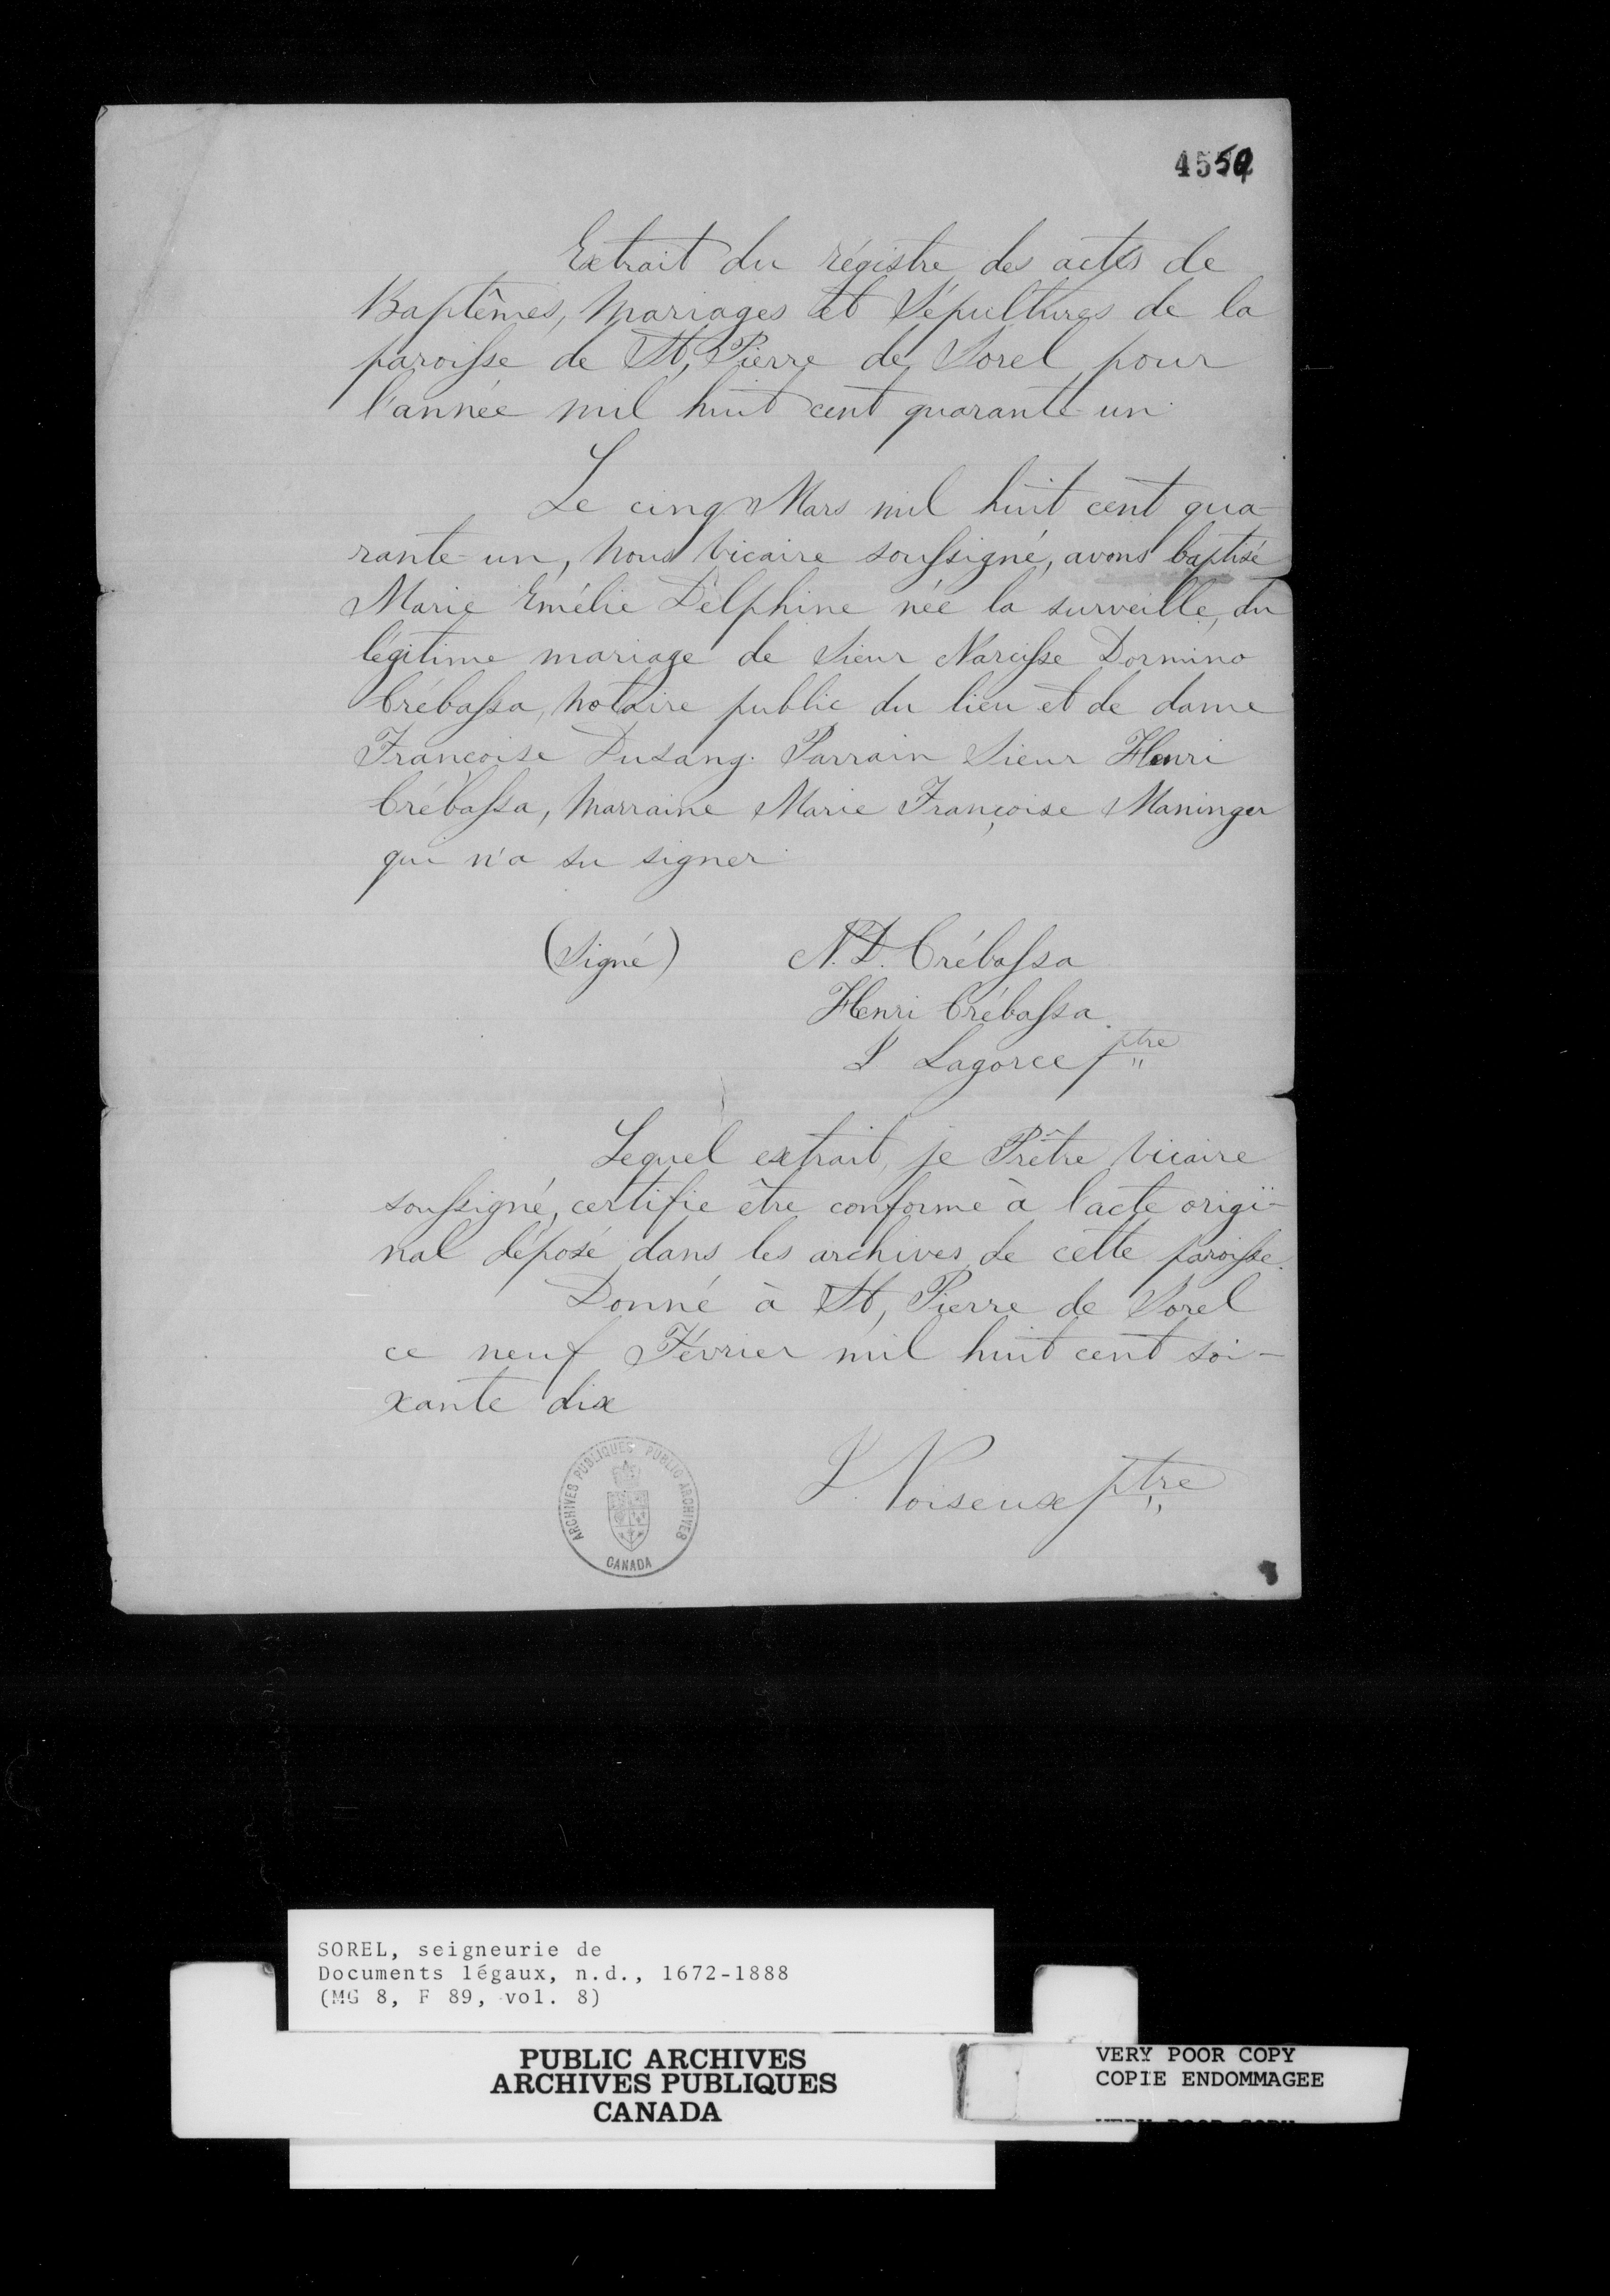 Extrait du régistre des actes de
Baptêmes, Mariages et Sépultures de la
paroisse de St, Pierre de Sorel pour
l'année mil huit cent quarante-un
Le cinq Mars mil huit cent qua-
rante-un, Nous Vicaire soussigné, avons baptisé
Marie Emélie Delphine née la surveille, du
légitime mariage de Sieur Narcisse Dormino
Crébassa, Notaire public du lieu et de dame
Françoise Dusang. Parrain Sieur Henri
Crébassa, Marraine Marie Françoise Maninger
qui n'a su signer
(Signé) N. D. Crébassa
Henri Crébassa
Lagorce ptre
Lequel extrait, je Prêtre Vicaire
soussigné, certifie être conforme à l'acte origi-
nal déposé dans les archives de cette paroisse.
Donné à St, Pierre de Sorel
ce neuf Février mil huit cent soi-
xante dix
L. Noiseux ptre
ARCHIVES PUBLIQUES PUBLIC ARCHIVES
CANADA
SOREL, seigneurie de
Documents légaux, n.d., 1672-1888
(MG 8, F 89, vol. 8)
PUBLIC ARCHIVES
ARCHIVES PUBLIQUES
CANADA
VERY POOR COPY
COPIE ENDOMMAGEE
VERY POOR COPY